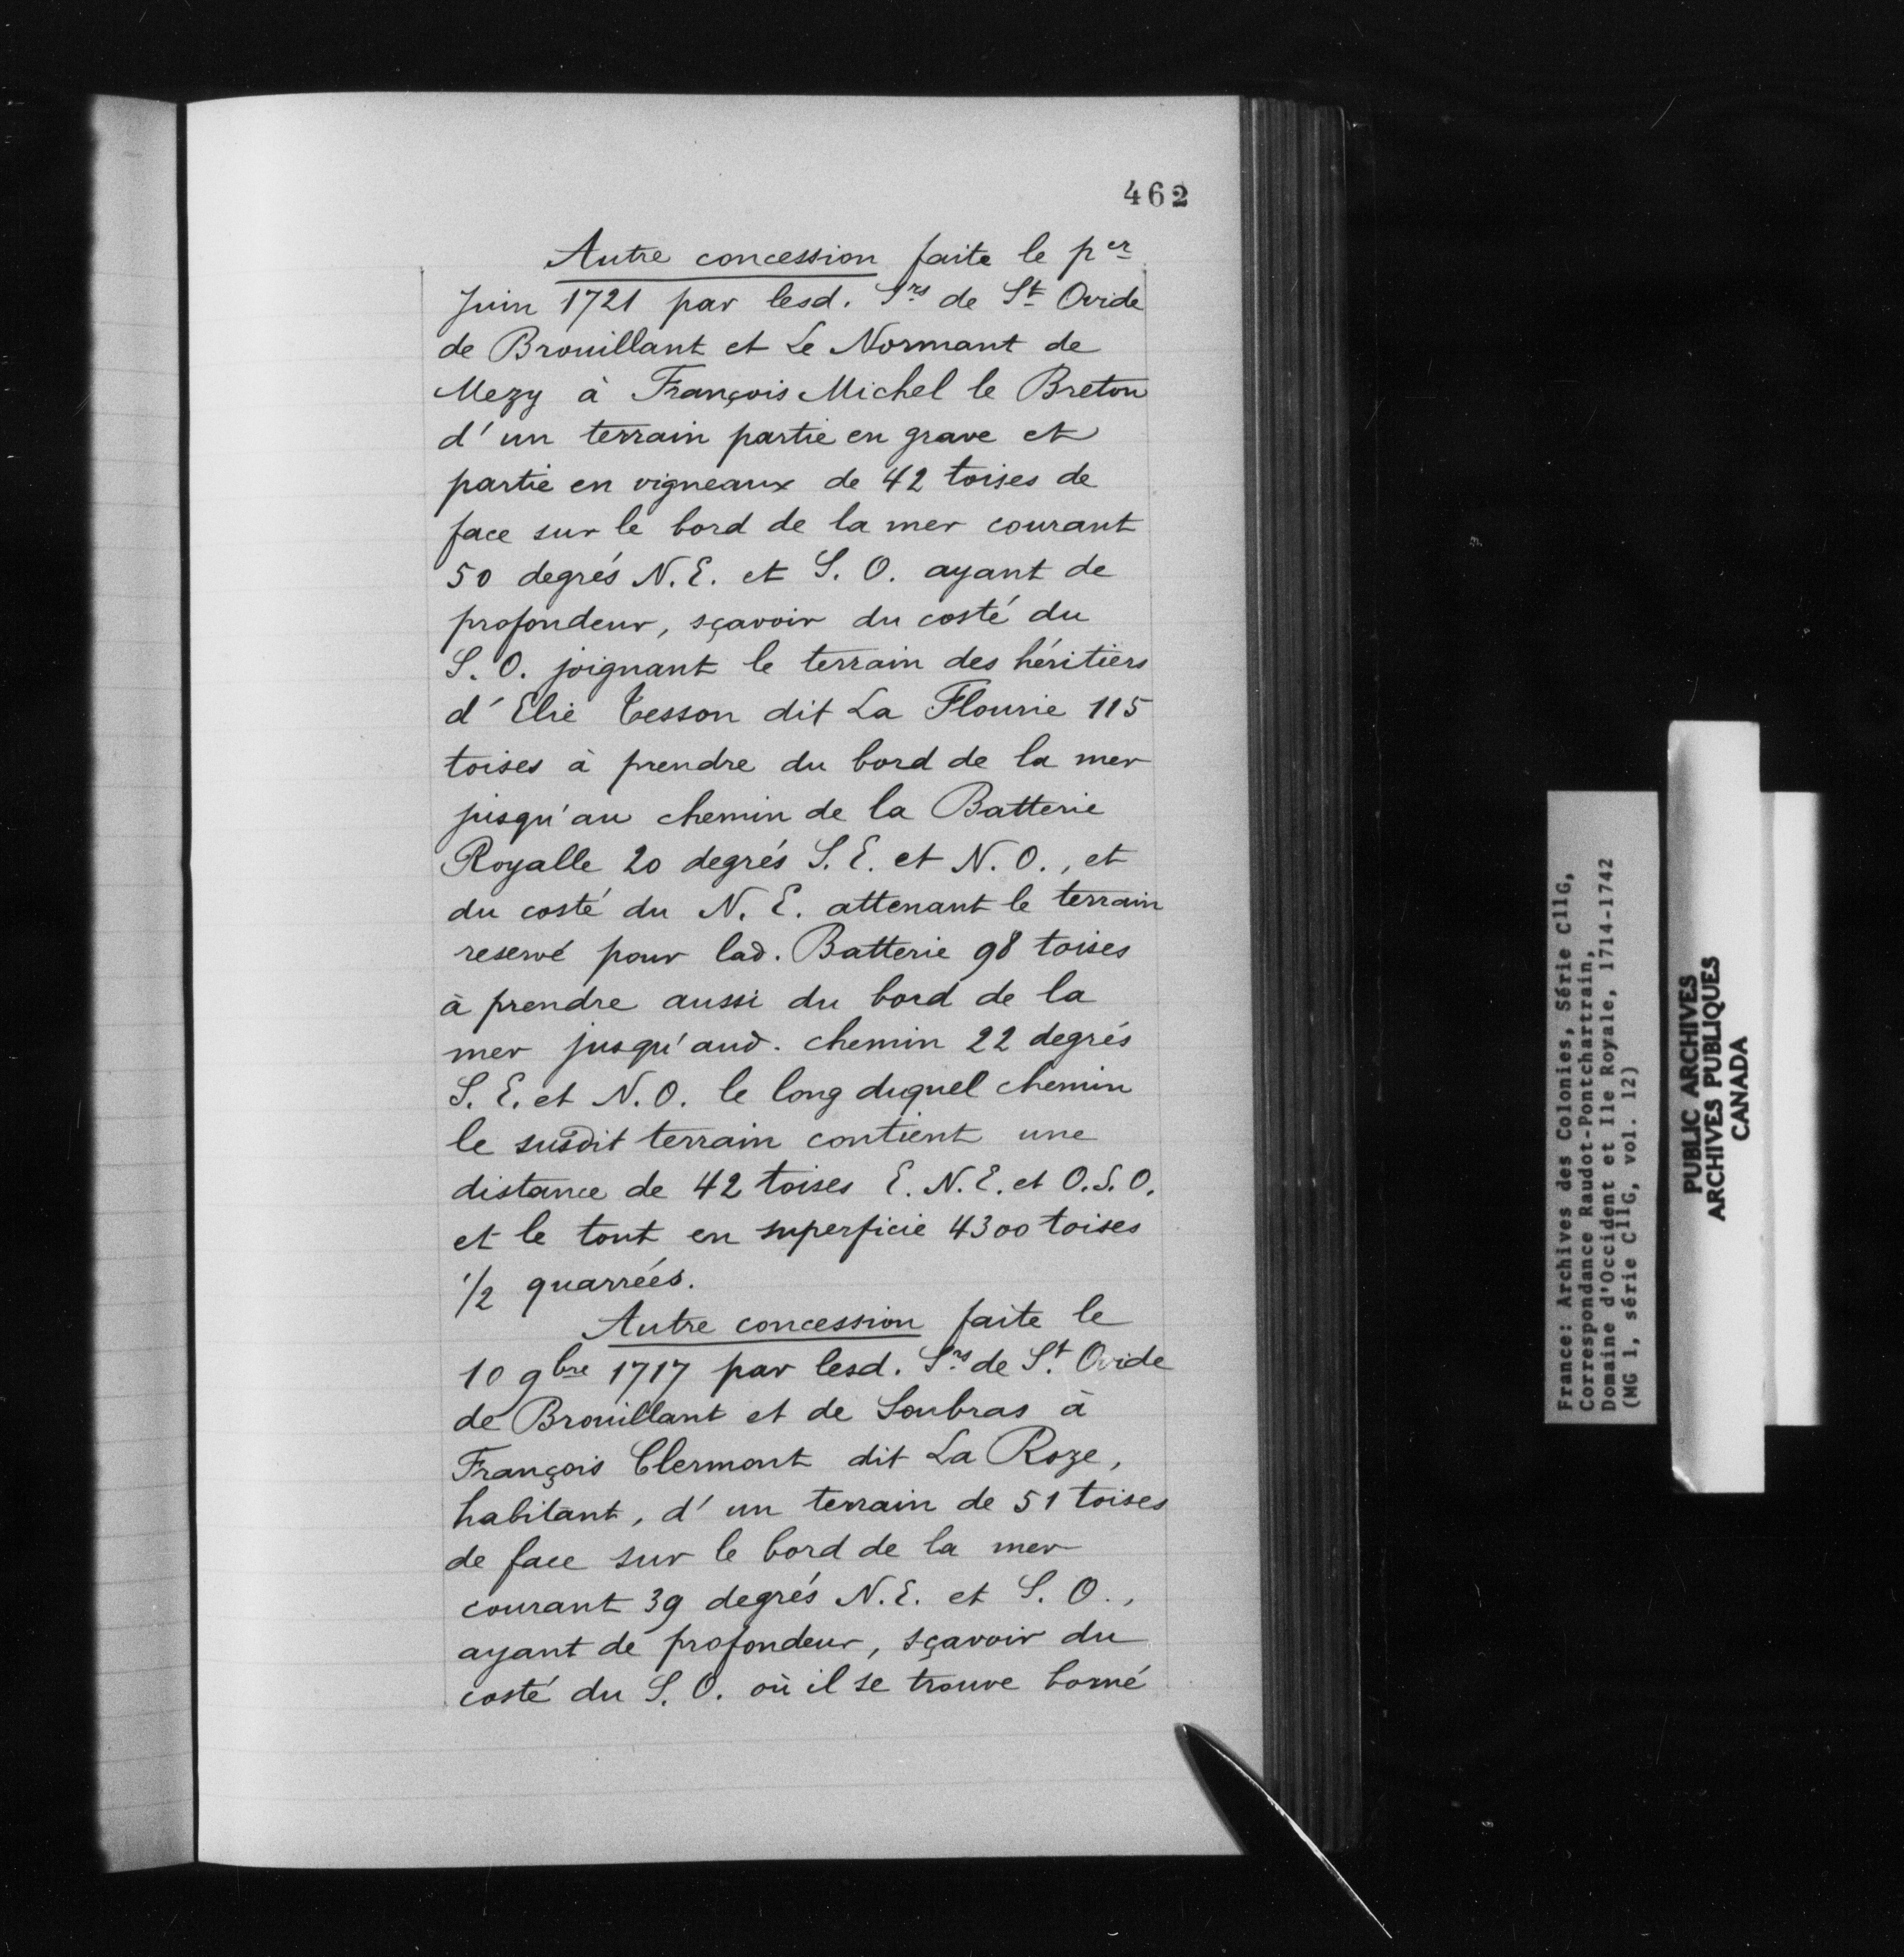 462
Autre concession faite le per
Juin 1721 par lesd. Srs de St Ovide
de Brouillant et Le Normant de
Mezy à François Michel le Breton
d'un terrain partie en grave et
partie en vigneaux de 42 toises de
face sur le bord de la mer courant
50 degrés N. E. et S. O. ayant de
profondeur, sçavoir du costé du
S. O. joignant le terrain des héritiers
d'Elie Tesson dit La Flourie 115
toises à prendre du bord de la mer
jusqu'au chemin de la Batterie
Royalle 20 degrés S. E. et N. O., et
du costé du N. E. attenant le terrain
reservé pour lad. Batterie 98 toises
à prendre aussi du bord de la
mer jusqu'aud. chemin 22 degrés
S. E. et N. O. le long duquel chemin
le susdit terrain contient une
distance de 42 toises E. N. E. et O. S. O.
et le tout en superficie 4300 toises
1/2 quarrées.
Autre concession faite le
10 9bre 1717 par lesd. Srs de St. Ovide
de Brouillant et de Soubras à
François Clermont dit La Roze,
habitant, d'un terrain de 51 toises
de face sur le bord de la mer
courant 39 degrés N. E. et S. O.,
ayant de profondeur, sçavoir du
costé du S. O. où il se trouve borné
France: Archives des Colonies, Série C11G,
Correspondance Raudot-Pontchartrain,
Domaine d'Occident et Ile Royale, 1714-1742
(MG 1, série C11G, vol. 12)
PUBLIC ARCHIVES
ARCHIVES PUBLIQUES
CANADA